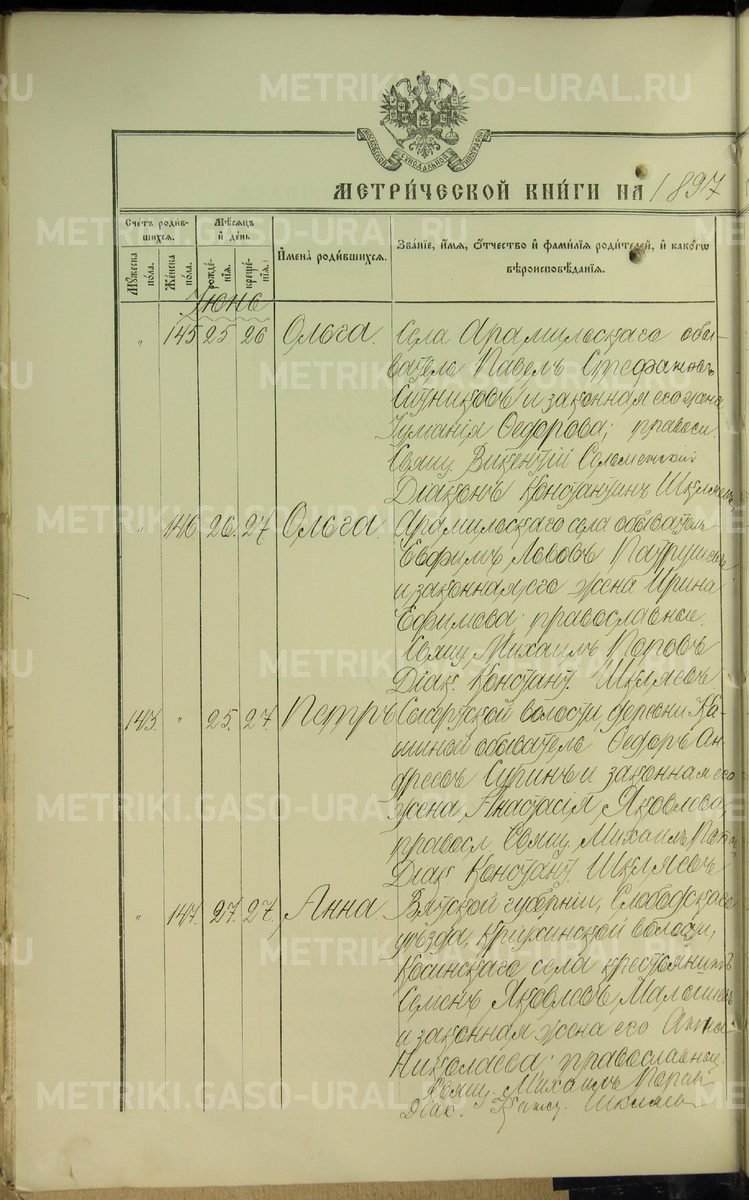 МОСКОВСКОЙ СѴНОДАЛЬНОЙ ТИПОГРАФІИ
METRIKI.GASO-URAL.RU
МЕТРИ́ЧЕСКОЙ КНИ́ГИ НА 1897
Счетъ роди́вшихся.
Мꙋ́жеска пола.
Же́нска пола.
Мѣ́сяцъ и҆ де́нь
рожде́нїѧ.
креще́нїѧ.
И҆мена̀ роди́вшихся.
Зва́нїе, и҆́мѧ, ѻ҆́тчество и҆ фами́лїѧ роди́телей, и҆ како́гѡ
вѣроисповѣ́данїѧ.
Іюнь
" 145 25 26 Ольга. Села Арамильскаго обы-
ватель Павелъ Стефановъ
Ситниковъ и законная его жена
Ѳедорова; правосл.
Свящ. Викентій
Діаконъ Константинъ Шкляевъ
" 146 26. 27 Ольга. Арамильскаго села обыватель
Евфимъ Львовъ Патрушевъ
и законная его жена Ирина
Ефимова; православные.
Свящ. Михаилъ Поповъ
Діак. Констант. Шкляевъ
143. " 25. 27 Петръ Сысертской волости деревни Ка-
шиной обыватель Ѳедоръ Ан-
дреевъ Суринъ и законная его
жена Анастасія Яковлева,
правосл. Свящ. Михаилъ Поповъ
Діак. Констант. Шкляевъ
" 147. 27. 27. Анна Вятской губерніи, Слободскаго
уѣзда, волости,
Косинскаго села крестьянинъ
Семенъ Яковлевъ
и законная жена его Анна
Николаева; православные.
Свящ. Михаилъ Поповъ
Діак. Конст. Шкляевъ